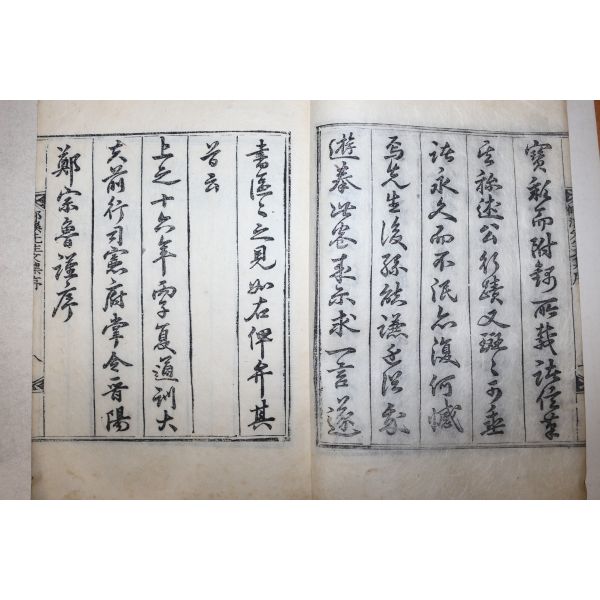 寶而附錄所載諸信
其称述公行蹟又斑〻可垂
諸永久而不泯亦復何憾
焉先生後孫
遊奉此卷來示求一言遂
書區〻之見如右俾弁其
首云
上之十六年丙子夏通訓大
夫前行司憲府掌令晉陽
鄭宗魯謹序